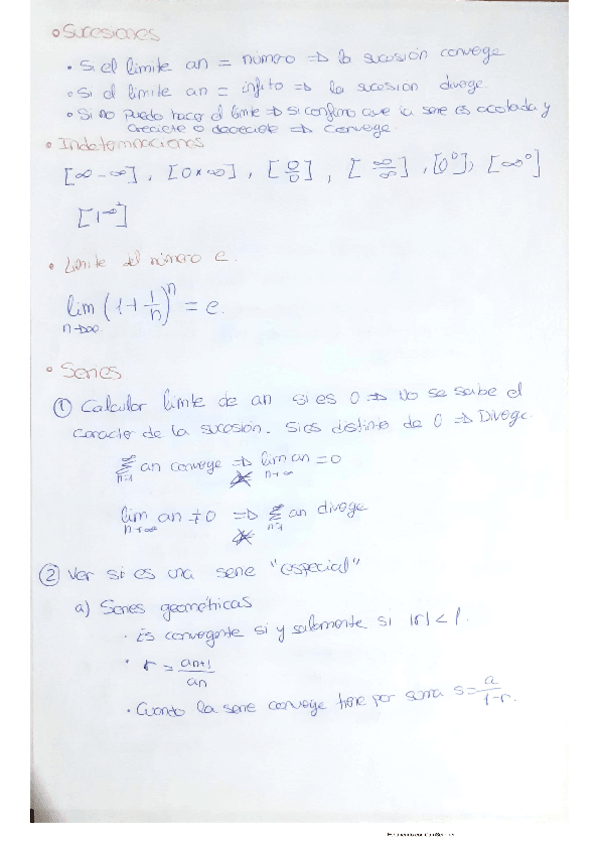 • Sucesiones
• Si el límite an = número ⇒ la sucesión converge
• Si el límite an = infito ⇒ la sucesion diverge.
• Si no puedo hacer el límite ⇒ si confirmo que la serie es acotada y
creciente o decreciente ⇒ converge.
• Indeterminaciones
[∞-∞], [0×∞], [0/0], [∞/∞], [0⁰], [∞⁰]
[1^∞]
• Límite del número e.
lim n→∞ (1+1/n)^n = e.
• Series
① Calcular límite de an si es 0 ⇒ No se sabe el
caracter de la sucesión. Si es distinto de 0 ⇒ Diverge.
∑ n=1 ∞ an converge ⇒ lim n→∞ an = 0
lim n→∞ an ≠ 0 ⇒ ∑ n=1 ∞ an diverge
② Ver si es una serie "especial"
a) Series geométricas
• Es convergente si y solamente si |r| < 1.
• r = an+1/an
• Cuando la serie converge tiene por suma s = a/1-r.